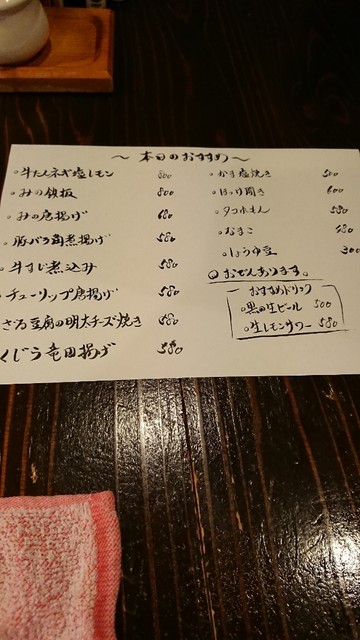 〜 本日のおすすめ 〜
。牛たんネギ塩レモン 800
。みの鉄板 800
。みの唐揚げ 680
。豚バラ角煮揚げ 580
。牛すじ煮込み 580
。チューリップ唐揚げ 580
ざる豆腐の明太チーズ焼き 580
くじら竜田揚げ 580
。かま塩焼き 500
。ほっけ開き 600
。タコ 580
480
300
◎おでんあります。
ー おすすめドリンク
。黒田生ビール 500
。生レモンサワー 580